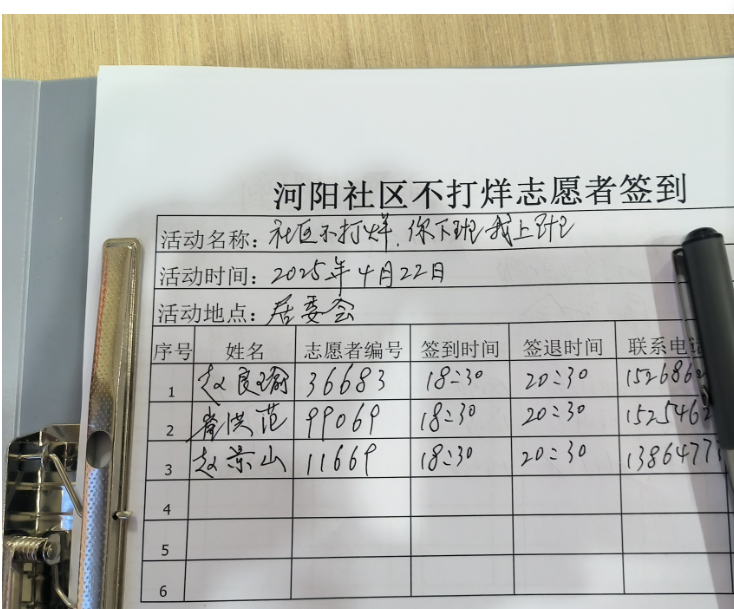 河阳社区不打烊志愿者签到
活动名称：社区不打烊，你下班我上班
活动时间：2025年4月22日
活动地点：居委会
序号 姓名 志愿者编号 签到时间 签退时间 联系电
1 赵良瑜 36683 18:30 20:30 152686
2 洪范 99069 18:30 20:30 1525462
3 赵景山 11669 18:30 20:30 1386477
4
5
6